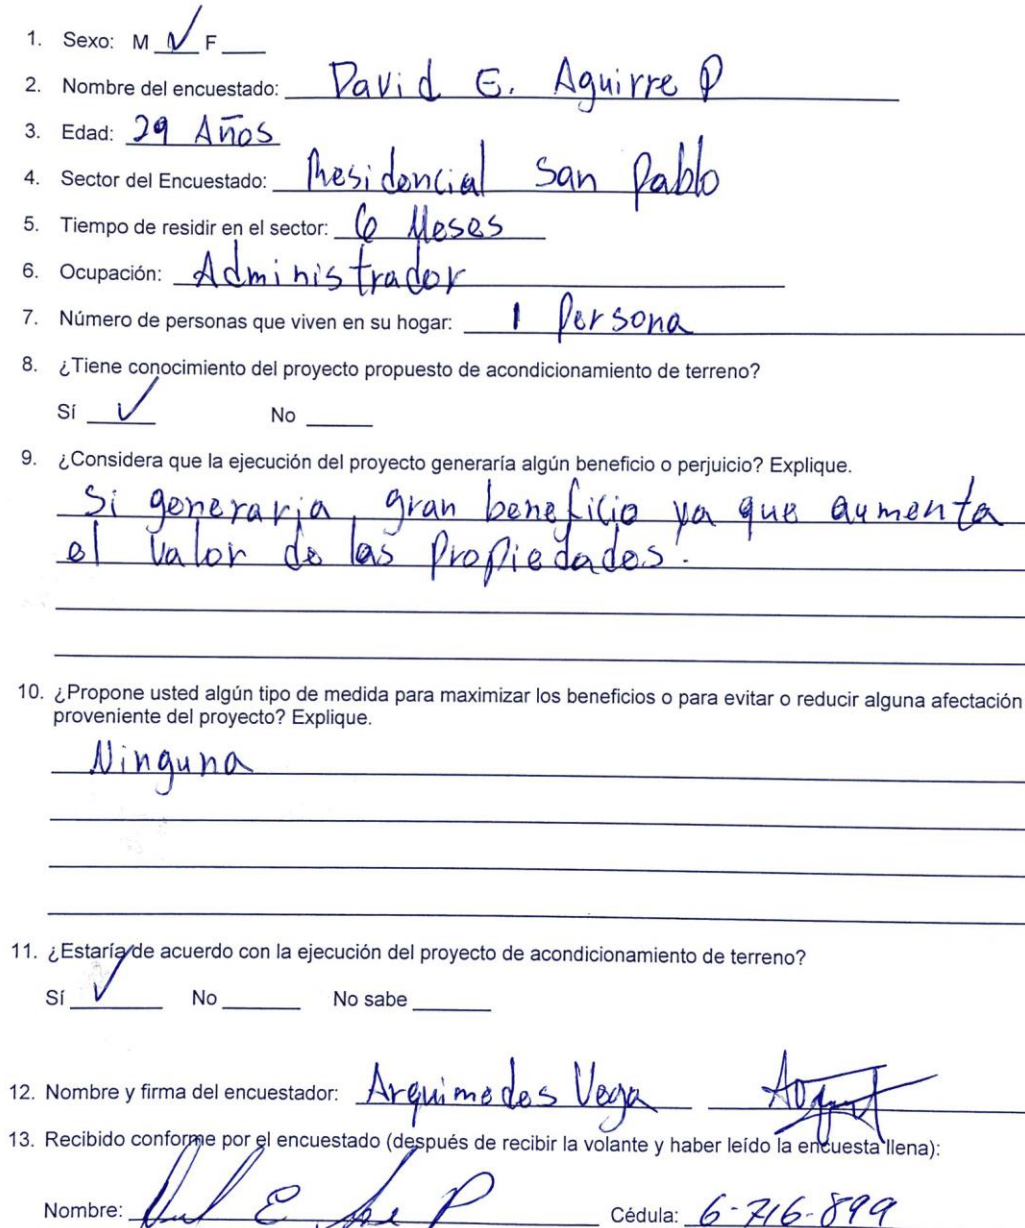 1. Sexo: M ✓ F ____
2. Nombre del encuestado: David E. Aguirre P
3. Edad: 29 Años
4. Sector del Encuestado: Residencial San Pablo
5. Tiempo de residir en el sector: 6 Meses
6. Ocupación: Administrador
7. Número de personas que viven en su hogar: 1 Persona
8. ¿Tiene conocimiento del proyecto propuesto de acondicionamiento de terreno?
Sí ✓ No ____
9. ¿Considera que la ejecución del proyecto generaría algún beneficio o perjuicio? Explique.
Si generaria, gran beneficio ya que aumenta
el valor de las Propiedades.
10. ¿Propone usted algún tipo de medida para maximizar los beneficios o para evitar o reducir alguna afectación
proveniente del proyecto? Explique.
Ninguna
11. ¿Estaría de acuerdo con la ejecución del proyecto de acondicionamiento de terreno?
Sí ✓ No ____ No sabe ____
12. Nombre y firma del encuestador: Arquimedes Vega
13. Recibido conforme por el encuestado (después de recibir la volante y haber leído la encuesta llena):
Nombre: E P Cédula: 6-716-899